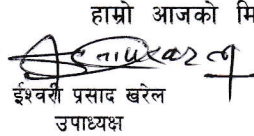 हाम्रो आजको मि
ईश्वरी प्रसाद खरेल
उपाध्यक्ष